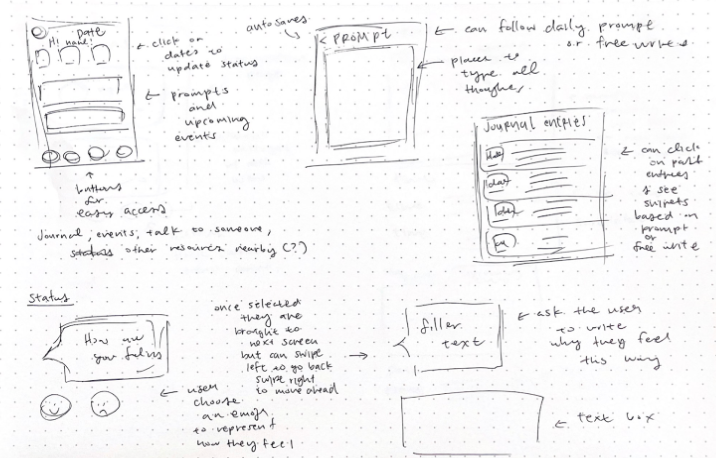 Date
Hi name!
← click on
dates to
update status
← prompts
and
upcoming
events
↑
buttons
for
easy access
Journal, events, talk to someone,
other resources nearby (?)
autosaves
< PROMPT
← can follow daily prompt
or free write
← place to
type all
thoughts
Journal entries
date
date
date
← can click
on past
entries
& see
snippets
based on
prompt
or
free write
Status
How are
you feeling
← user
choose
an emoji
to represent
how they feel
once selected
they are
brought to
next screen
but can swipe
left to go back
swipe right
to move ahead
→
filler
text
← ask the user
to write
why they feel
this way
← text box